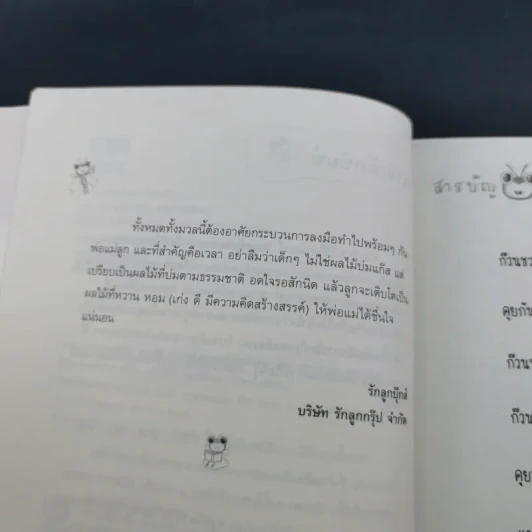 ทั้งหมดทั้งมวลนี้ต้องอาศัยกระบวนการลงมือทำไปพร้อมๆ กัน
พ่อแม่ลูก และที่สำคัญคือเวลา อย่าลืมว่าเด็กๆ ไม่ใช่ผลไม้บ่มแก๊ส แต่
เปรียบเป็นผลไม้ที่บ่มตามธรรมชาติ อดใจรอสักนิด แล้วลูกจะเติบโตเป็น
ผลไม้ที่หวาน หอม (เก่ง ดี มีความคิดสร้างสรรค์) ให้พ่อแม่ได้ชื่นใจ
แน่นอน
รักลูกบุ๊กส์
บริษัท รักลูกกรุ๊ป จำกัด
สารบัญ